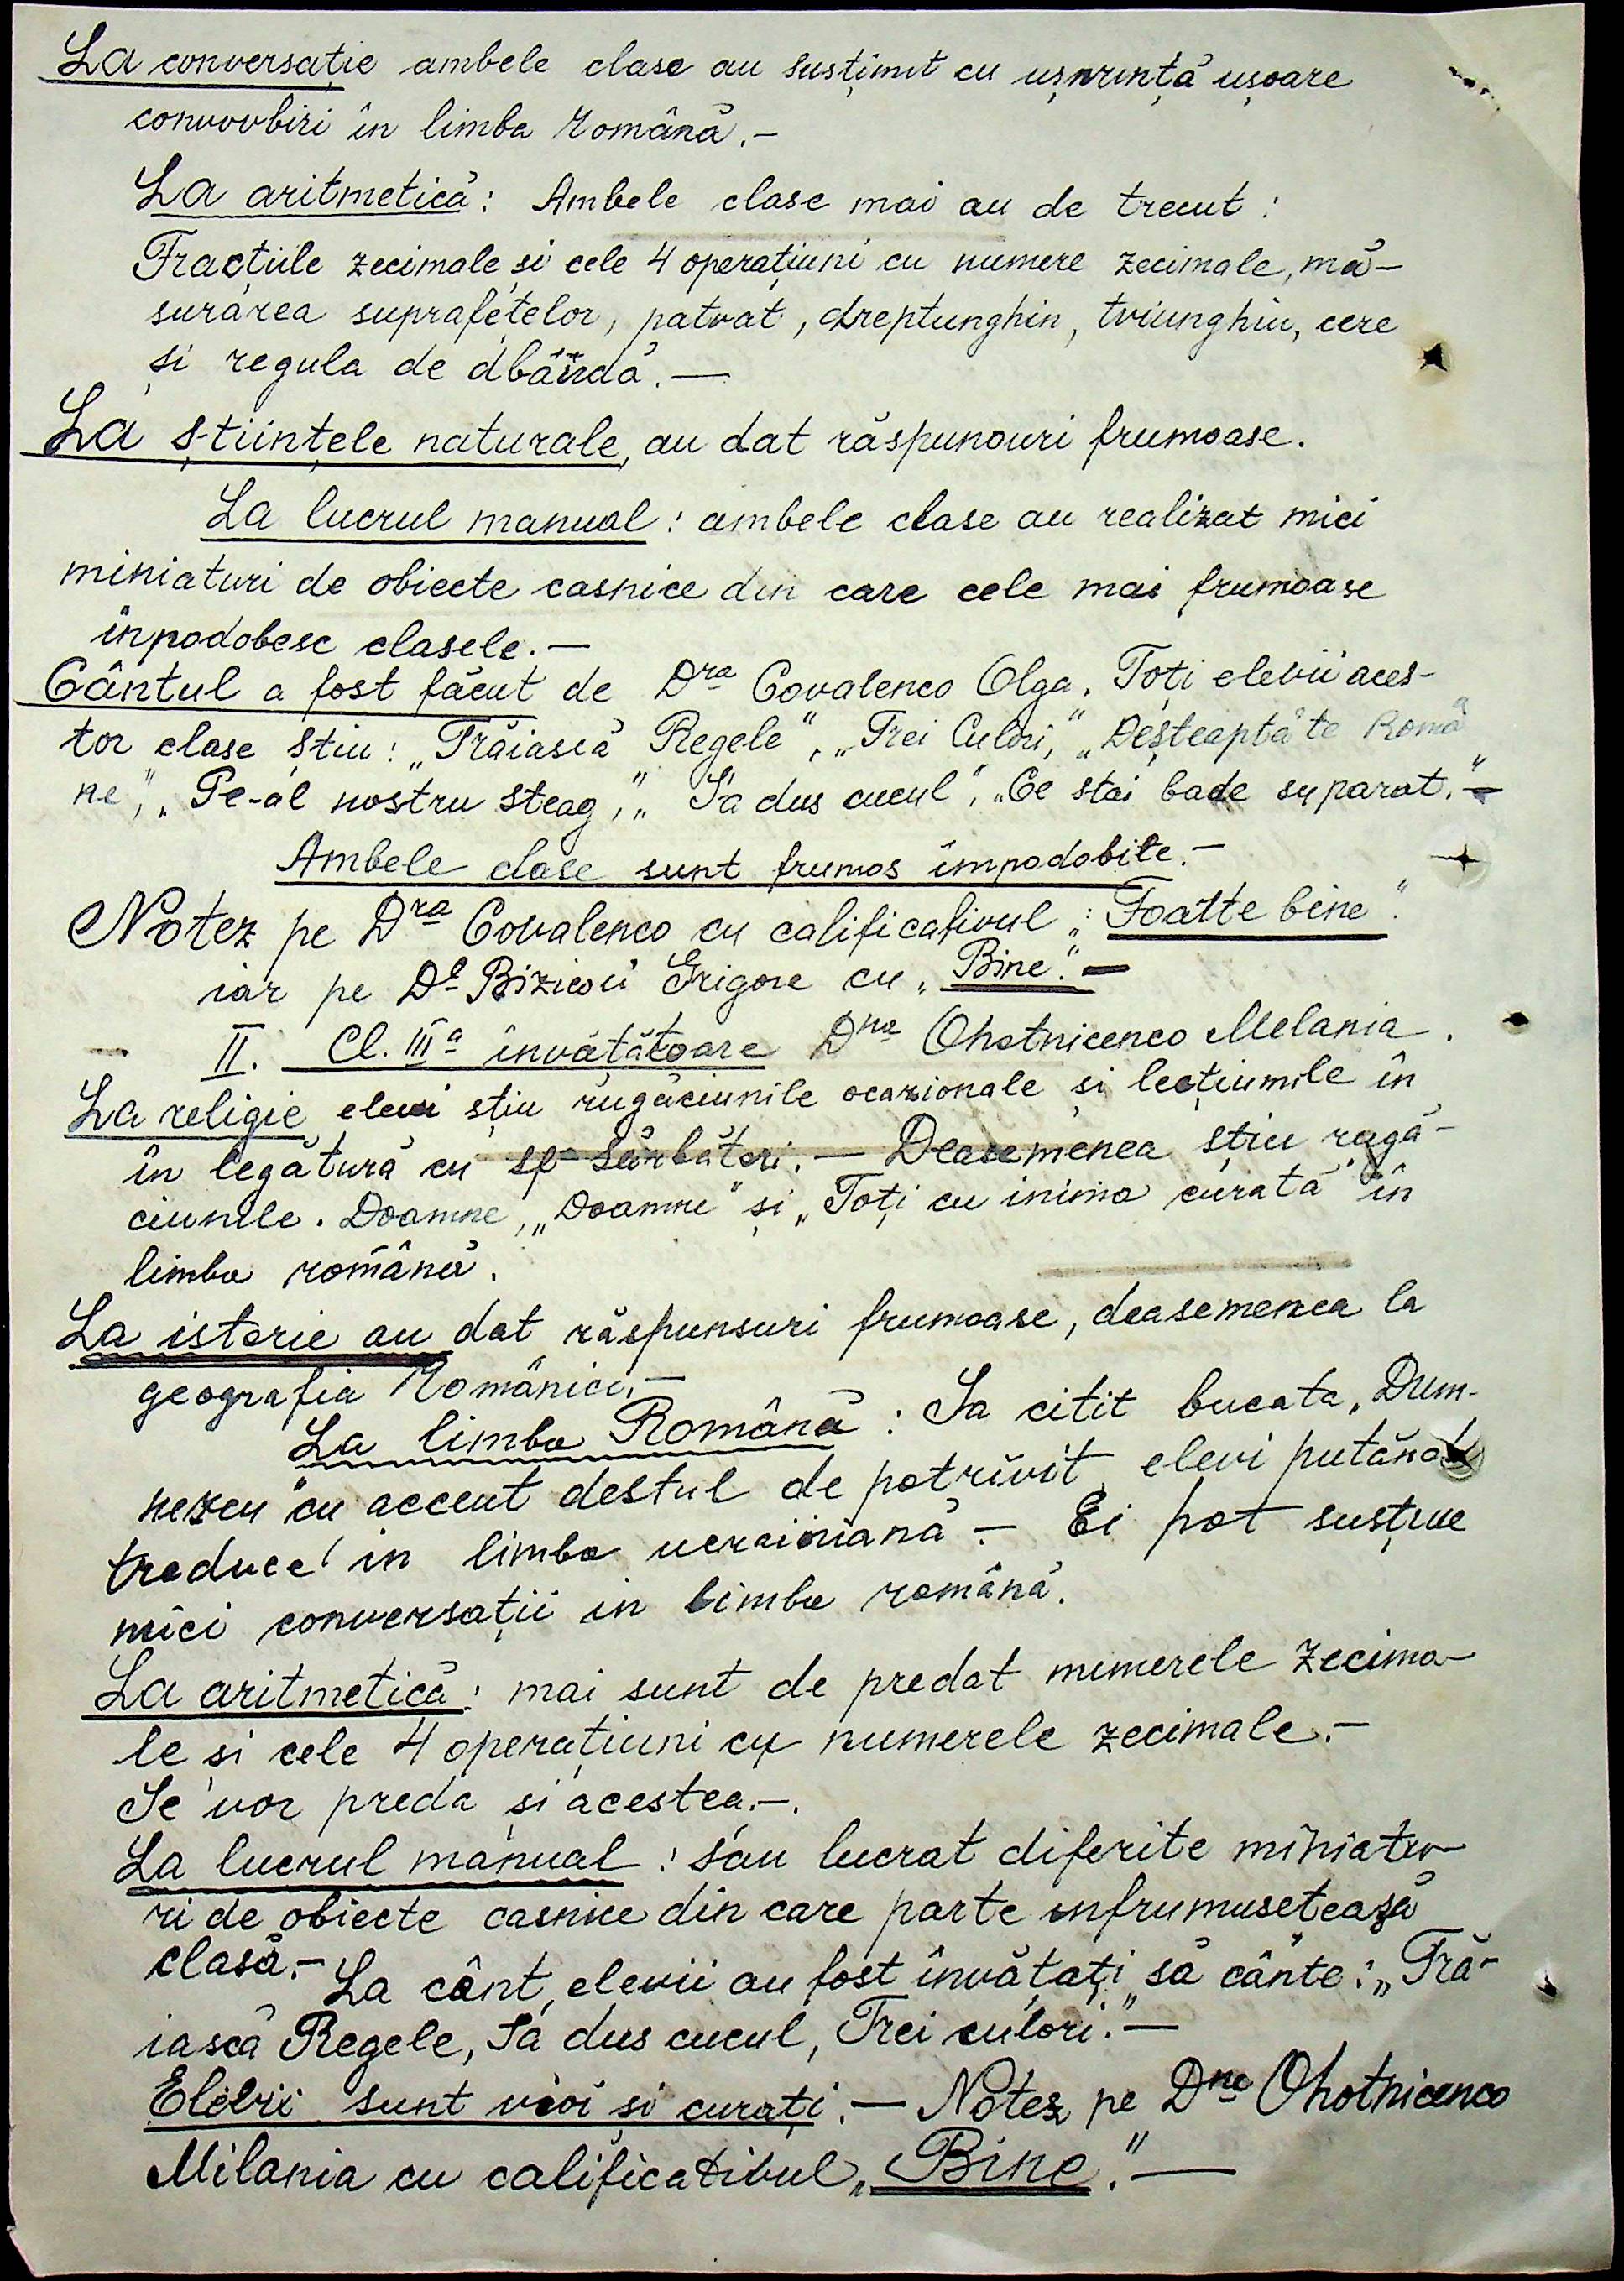 La conversație ambele clase au susținut cu ușurință ușoare
convorbiri în limba Română.-
La aritmetică: Ambele clase mai au de trecut:
Fracțiile zecimale și cele 4 operațiuni cu numere zecimale, mă-
surarea suprafețelor, patrat, dreptunghiu, triunghiu, cerc
și regula de dbândă.—
La științele naturale, au dat răspunouri frumoase.
La lucrul manual: ambele clase au realizat mici
miniaturi de obiecte casnice din care cele mai frumoase
înpodobesc clasele.—
Cântul a fost făcut de Dra Covalenco Olga. Toți elevii aces-
tor clase știu: „Trăiască Regele", „Trei Culori," „Deșteaptă te Româ
ne", „Pe-al nostru steag," „S'a dus cucul", „Ce stai bade suparat."-
Ambele clase sunt frumos împodobite.-
Notez pe Dra Covalenco cu calificativul „: Foatte bine".
iar pe Dl Bizicoi Grigore cu „Bine."-
II. Cl. IIIa învățătoare Dna Ohotnicenco Melania.
La religie elevi știu rugăciunile ocazionale și lecțiunile în
în legătură cu sf sărbători.— Deasemenea știu rugă-
ciunile. Doamne, „Doamne" și „Toți cu inima curată" în
limba română.
La istorie au dat răspunsuri frumoase, deasemenea la
geografia României.-
La limba Română: Sa citit bucata „Dum-
nezeu" cu accent destul de potrivit, elevi putănd
traduce în limba ucraiiniană.- Ei pot susține
mici conversații in limba română.
La aritmetică: mai sunt de predat numerele zecima-
le și cele 4 operațiuni cu numerele zecimale.-
Se vor preda și acestea.-.
La lucrul manual: s'au lucrat diferite miniatu-
ri de obiecte casnice din care parte infrumusețează
clasă.- La cânt, elevii au fost învățați să cânte: „Tră-
iască Regele, Sa dus cucul, Trei culori."—
Elevii sunt vioi și curați.— Notez pe Dna Ohotnicenco
Milania cu calificativul „Bine."—